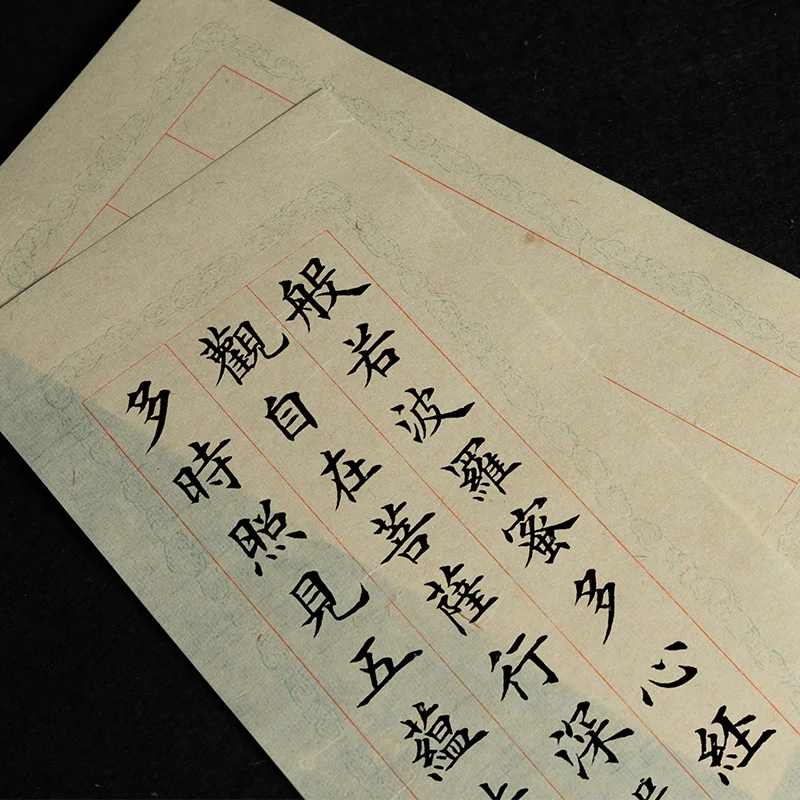 般若波羅蜜多心経
觀自在菩薩行深
多時照見五蘊